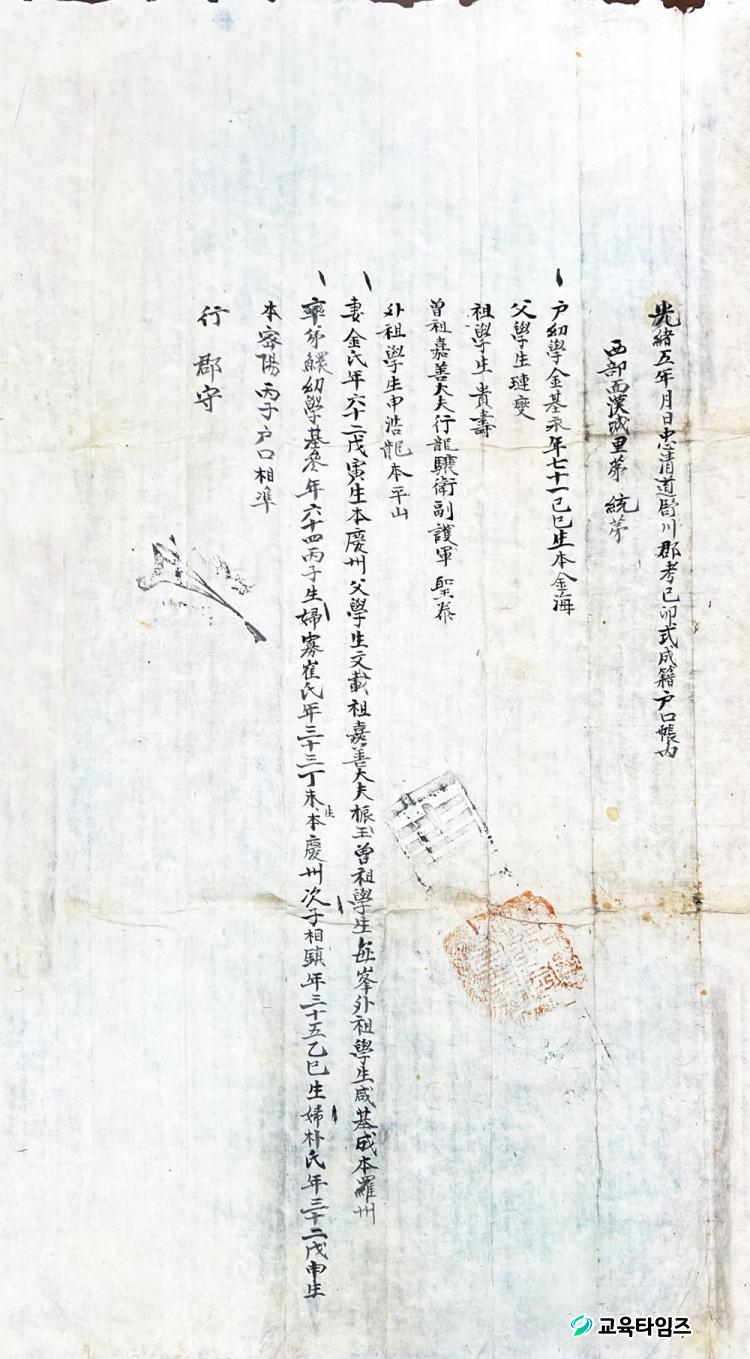 光緒五年月日忠淸道舒川郡考己卯式成籍戶口帳內
西部面漢城里第 統第
戶幼學金基永年七十一己巳生本金海
父學生璉燮
祖學生貴壽
曾祖嘉善大夫行龍驤衛副護軍聖泰
外祖學生申浩龍本平山
妻金氏年六十二戊寅生本慶州父學生文載祖嘉善大夫振玉曾祖學生每峯外祖學生咸基成本羅州
率弟鰥幼學基參年六十四丙子生婦寡崔氏年三十三丁未生本慶州次子相鎭年三十五乙巳生婦朴氏年三十二戊申生
本密陽丙子戶口相準
行 郡守
교육타임즈